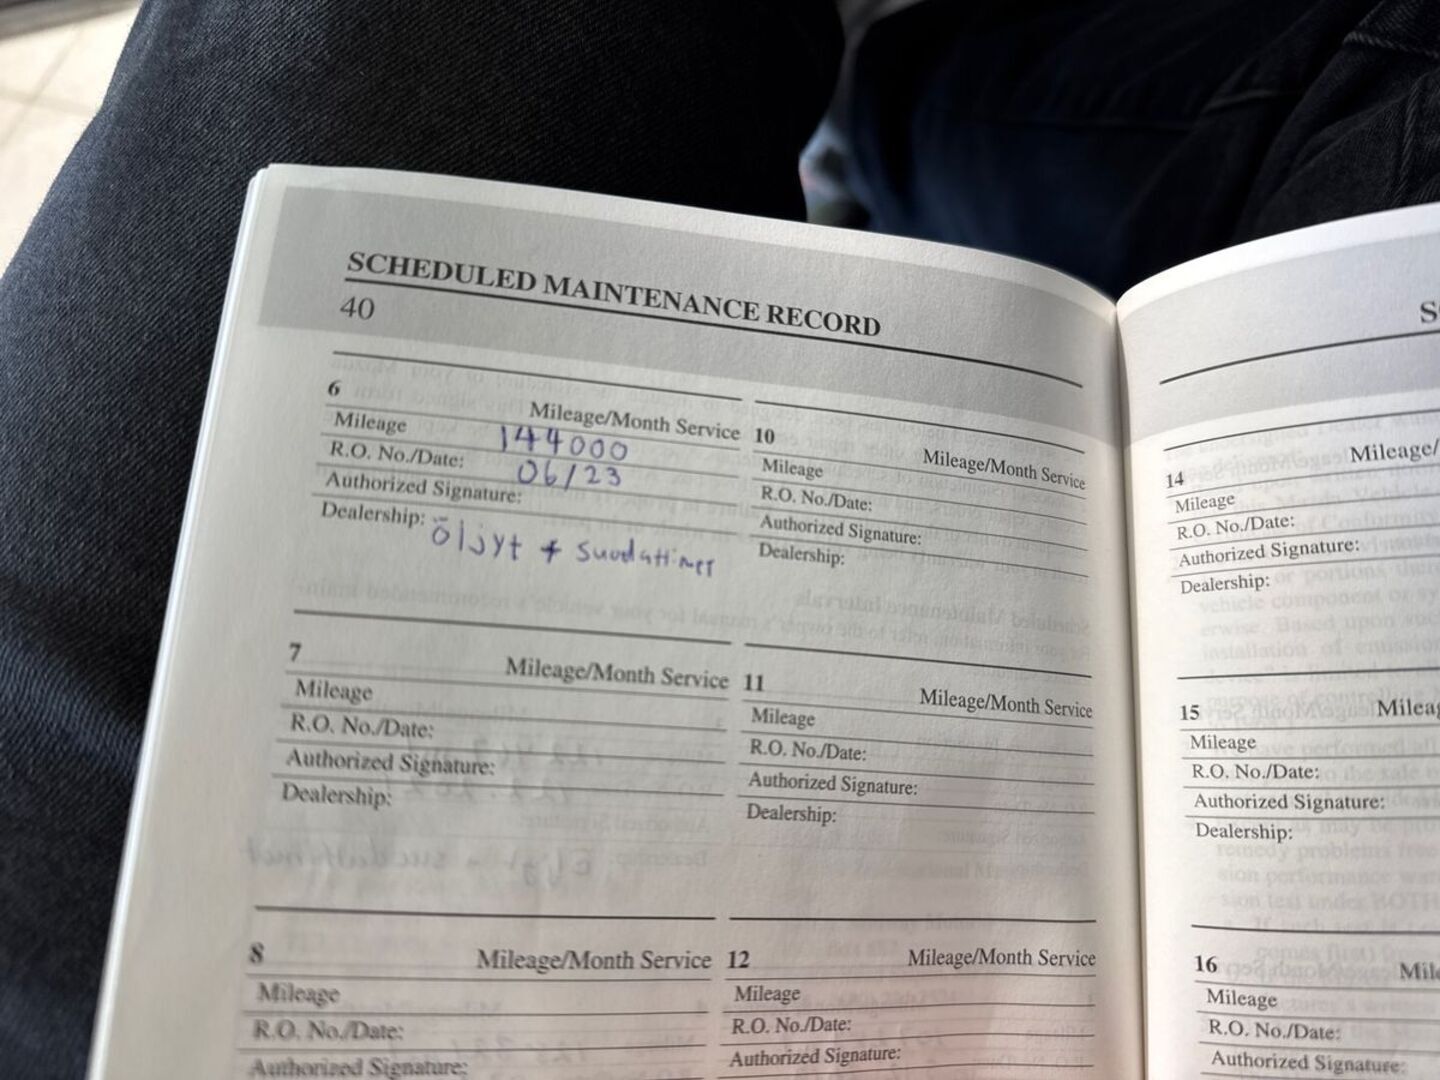 SCHEDULED MAINTENANCE RECORD
40
6
Mileage/Month Service
Mileage 144000
R.O. No./Date: 06/23
Authorized Signature:
Dealership: öljyt + suodattimet
7
Mileage/Month Service
Mileage
R.O. No./Date:
Authorized Signature:
Dealership:
8
Mileage/Month Service
Mileage
R.O. No./Date:
Authorized Signature:
10
Mileage/Month Service
Mileage
R.O. No./Date:
Authorized Signature:
Dealership:
11
Mileage/Month Service
Mileage
R.O. No./Date:
Authorized Signature:
Dealership:
12
Mileage/Month Service
Mileage
R.O. No./Date:
Authorized Signature:
14
Mileage/
Mileage
R.O. No./Date:
Authorized Signature:
Dealership:
15
Mileage
R.O. No./Date:
Authorized Signature:
Dealership:
16
Mileage
R.O. No./Date:
Authorized Signature: